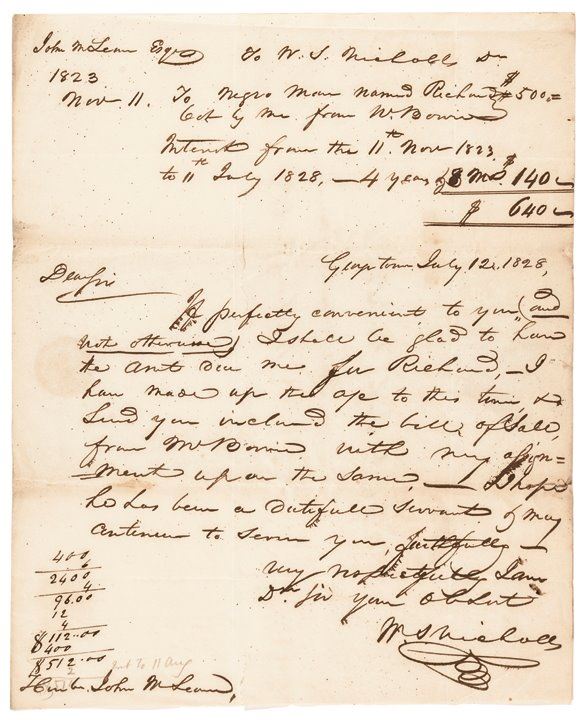 John McLean Esqr To W. S. Nicholls Dr
1823
Nov 11. To Negro Man named Richard $500=
Bot by me from Mr Bowie
Interest from the 11th Nov 1823
to 11th July 1828, — 4 years & 8 Mos. $140—
$ 640—
Geo,town July 12. 1828,
Dear Sir
If perfectly convenient to you (and
not otherwise) I shall be glad to have
the amt due me for Richard, — I
have made up the a/c to this time &
send you inclosed the bill of Sale,
from Mr Bowie with my assign=
=ment upon the same — I hope
he has been a dutifull Servant & may
continue to serve you, faithfully —
very respectfully I am
Dr Sir your Obt Svt
W. S. Nicholls
400
6
2400
4
96.00
12
4
$112.00
$400
$512.00
int to 11 Aug
Honble. John McLean,